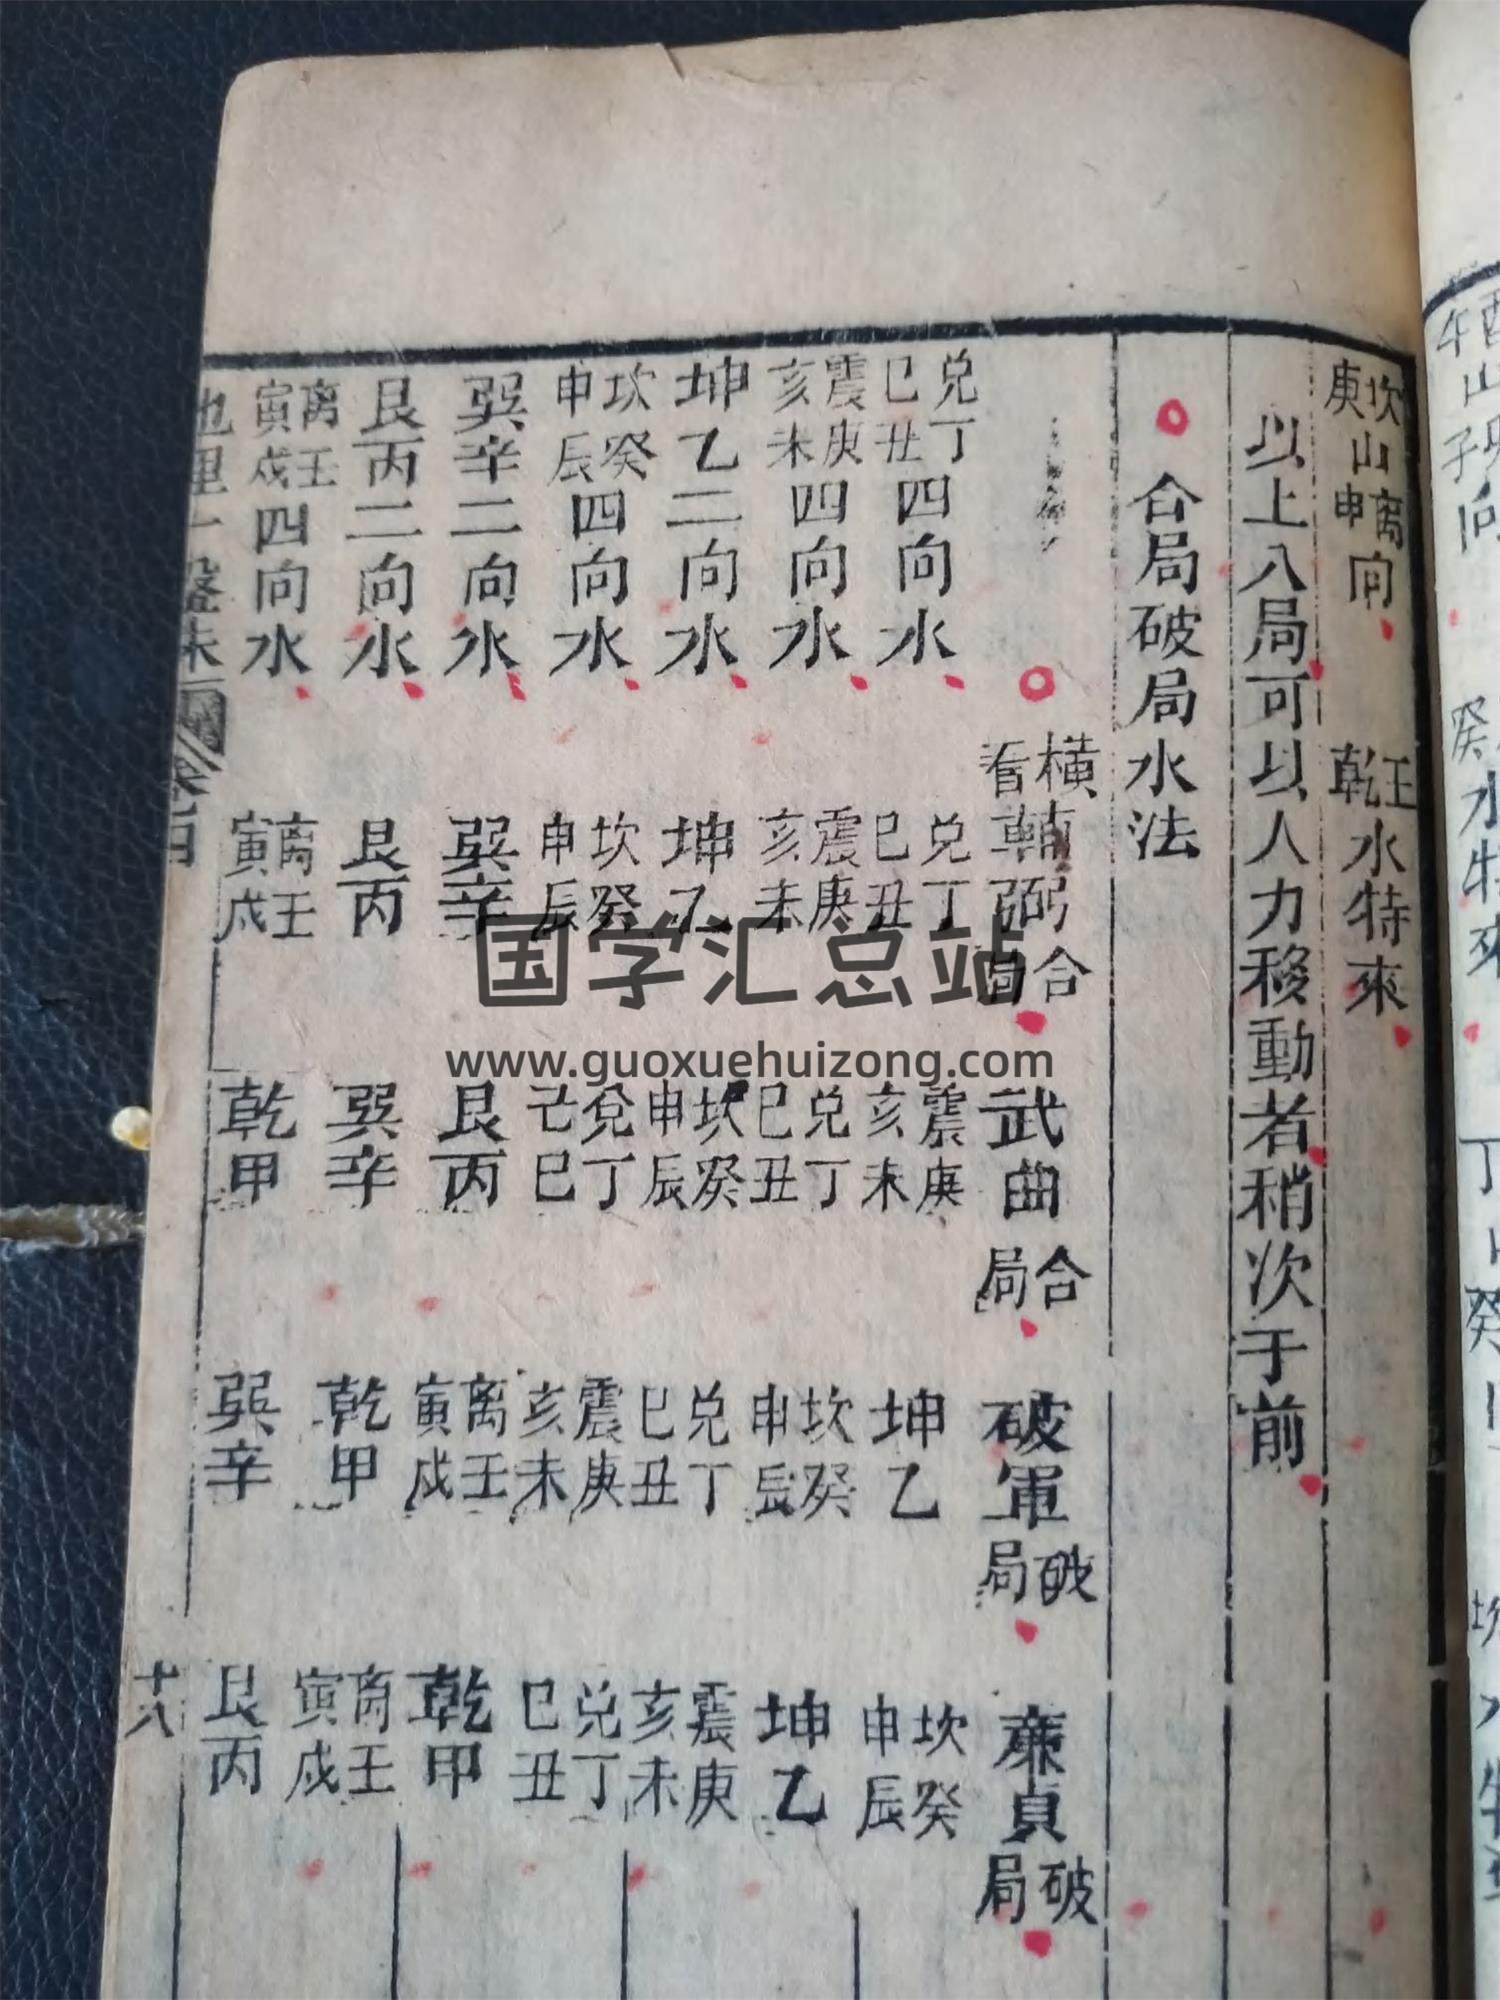 坎離
庚申
山向
壬
乾
水特來
以上八局可以人力移動者稍次于前
合局破局水法
橫看
輔弼合局
武曲合局
破軍破局
廉貞破局
兌丁巳丑四向水
兌丁巳丑
震庚亥未
坤乙
坎癸申辰
震庚亥未四向水
震庚亥未
兌丁巳丑
坎癸申辰
坤乙
坤乙二向水
坤乙
坎癸申辰
兌丁巳丑
震庚亥未
坎癸申辰四向水
坎癸申辰
兌丁
巳
震庚亥未
兌丁巳丑
巽辛二向水
巽辛
艮丙
離壬寅戌
乾甲
艮丙二向水
艮丙
巽辛
乾甲
離壬寅戌
離壬寅戌四向水
離壬寅戌
乾甲
巽辛
艮丙
十八
国学汇总站
www.guoxuehuizong.com